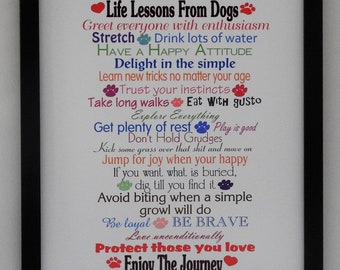 Life Lessons From Dogs
Greet everyone with enthusiasm
Stretch Drink lots of water
Have a Happy Attitude
Delight in the simple
Learn new tricks no matter your age
Trust your instincts
Take long walks Eat with gusto
Explore Everything
Get plenty of rest Play is good
Don't Hold Grudges
Kick some grass over that shit and move on
Jump for joy when your happy
If you want what is buried,
dig till you find it
Avoid biting when a simple
growl will do
Be loyal BE BRAVE
Love unconditionally
Protect those you love
Enjoy The Journey